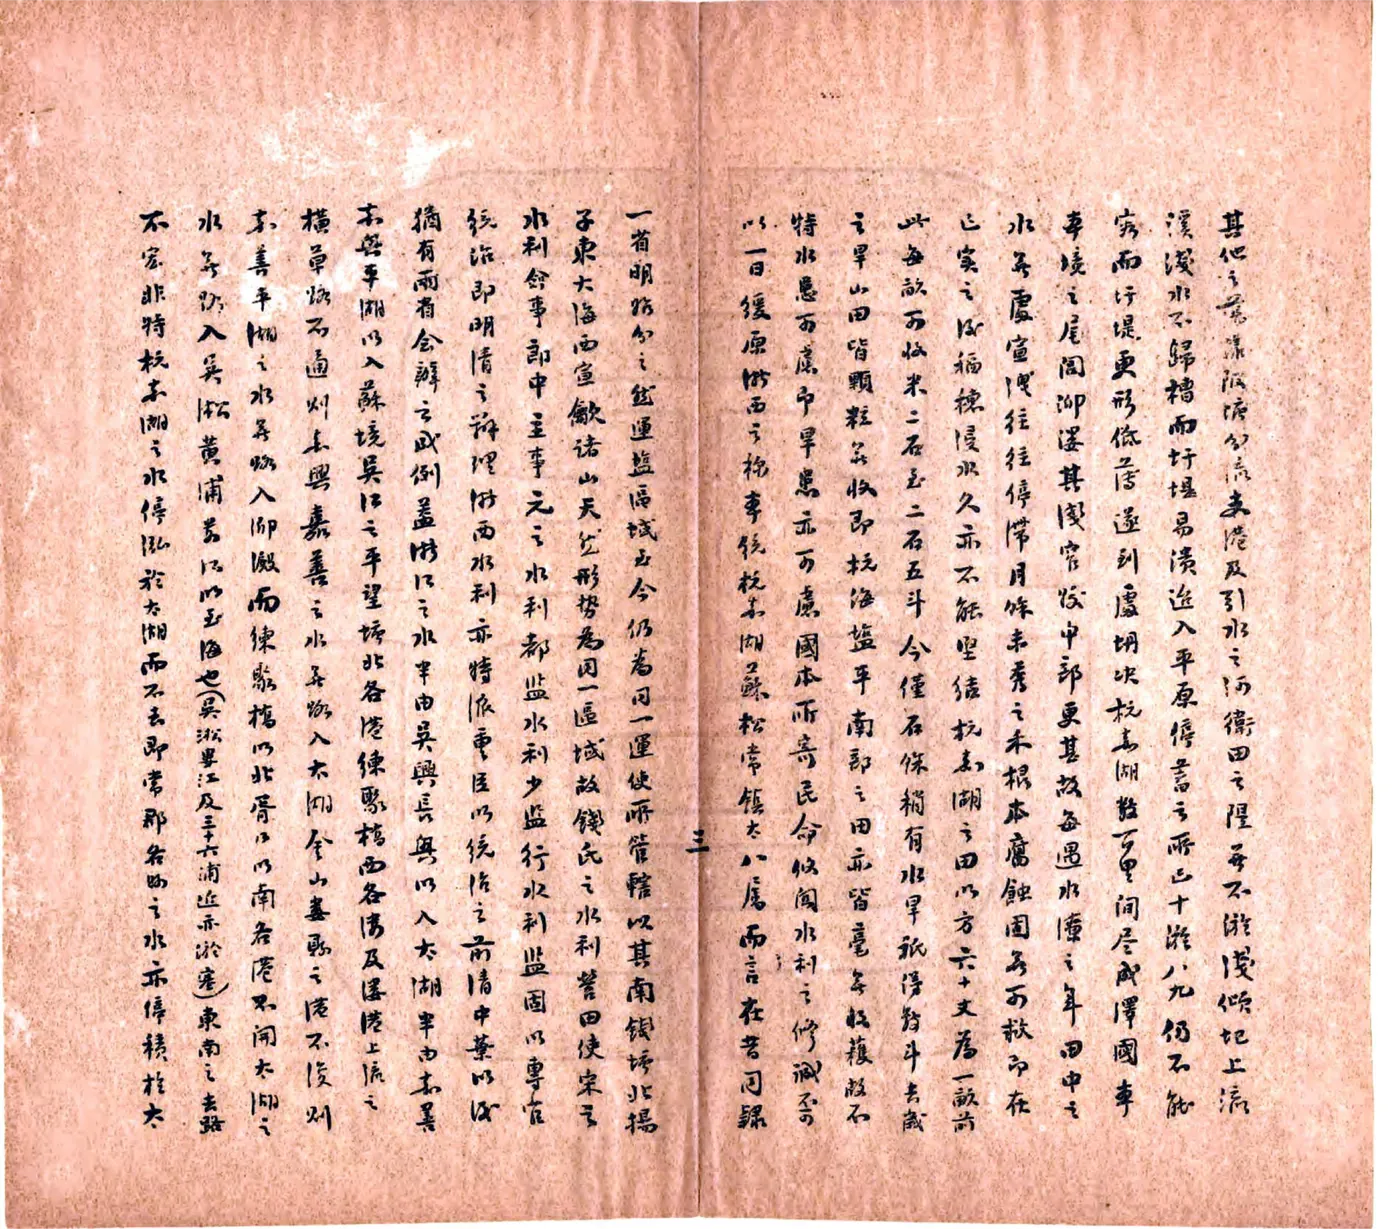 其他之蕩漾陂塘分流支港及引水之河衛田之隄無不淤淺傾圮上流
溪淺水不歸槽而圩堤易潰迨入平原停蓄之所已十淤八九仍不能
容而圩堤更形低薄遂到處坍決杭嘉湖數百里間尽成澤國本
本境之尾閭泖漊其淺窄較中部更甚故每遇水潦之年田中之
水無處宣洩往往停滯月餘未秀之禾根本腐蝕固無可救即在
已實之後稻穗浸水久亦不能堅結杭嘉湖之田以方六十丈為一畝前
此每畝可收米二石至二石五斗今僅石餘稍有水旱祇得數斗去歲
之旱山田皆顆粒無收即杭海鹽平南部之田亦皆毫無收穫故不
特水患可慮即旱患亦可慮國本所寄民命攸關水利之修誠不可
以一日緩原浙西之稱本統杭嘉湖蘇松常鎮太八屬而言在昔同隸
三
一省明始分之然運鹽區域至今仍為同一運使所管轄以其南錢塘北揚
子東大海西宣歙諸山天然形勢為同一區域故錢氏之水利營田使宋之
水利僉事郎中主事元之水利都監水利少監行水利監固以專官
統治即明清之辦理浙西水利亦特派重臣以統治之前清中葉以後
猶有兩省会辦之成例蓋浙江之水半由吳興長興以入太湖半由嘉善
嘉興平湖以入蘇境吳江之平望塘北各港練聚橋西各漊及漊港上流之
橫草路不通則嘉興嘉善之水無路入太湖金山婁縣之港不浚則
嘉善平湖之水無路入泖澱而練聚橋以北胥口以南各港不開太湖之
水無路入吳淞黃浦婁江以至海也(吳淞婁江及三十六浦近亦淤塞)東南之去路
不宏非特杭嘉湖之水停泓於太湖而不去即常郡各縣之水亦停積於太